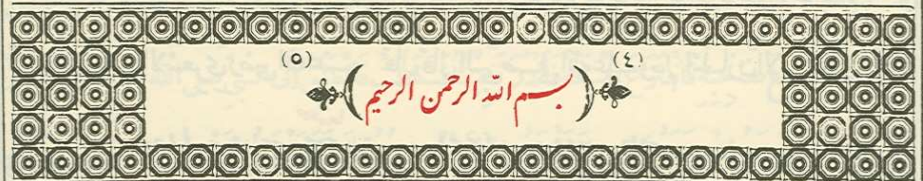 (٤) (٥)
بسم الله الرحمن الرحيم